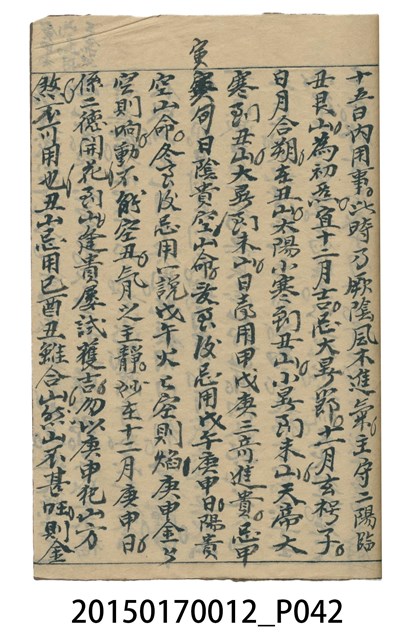 寅
十五日內用事此時乃厥陰風木進氣主守二陽臨
丑艮山為初忌宜十二月吉忌大暑節十一月玄枵子
日月合朔在丑山太陽小寒到丑山小暑到未山天帝大
寒到丑山大暑到未山日壽用甲戊庚三奇進貴忌甲
寅何日陰貴空山命亥至後忌用戊午庚申日陽貴
空山命冬至後忌用一說戊午火七空則焰庚申金公
空則响動不能空丑气月之主靜在十二月庚申日
係二德開花到山逢貴屡試獲吉勿以庚申犯山方
煞不可用也丑山忌用巳酉丑雖合山然山不甚旺則金
20150170012_P042